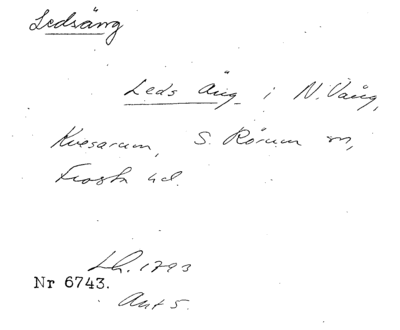 Ledsäng
Leds Äng i N. Vång,
Kvesarum, S. Rörum sn,
Frosta hd.
Lh. 1793
Nr 6743.
Akt 5.